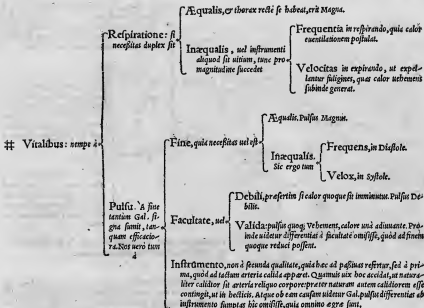 Æqualis, & thorax rectè se habeat, erit Magna.
Respiratione: si
necessitas duplex sit
Inæqualis, uel instrumenti
aliquod sit uitium, tunc pro
magnitudine succedet
Frequentia in respirando, quia calor
euentilationem postulat.
Velocitas in expirando, ut expel-
lantur fuligines, quas calor uehemens
subinde generat.
# Vitalibus: nempe à
Pulsu. À fine
tantùm Gal. si-
gna sumit, tan-
quam efficacio-
ra. Nos uerò tum
à
Fine, quia necessitas uel est
Æqualis. Pulsus Magnus.
Inæqualis.
Sic ergo tum
Frequens, in Diastole.
Velox, in Systole.
Facultate, uel
Debili, præsertim si calor quoque sit imminutus. Pulsus De-
bilis.
Valida: pulsus quoq; Vehement, calore unà adiuuante. Pro-
inde uidetur differentias à facultate omisisse, quòd ad finem
quoque reduci possent.
Instrumento, non à secunda qualitate, quia hæc ad passiuas refertur, sed à pri-
ma, quòd ad tactum arteria calida appareat. Quamuis uix hoc accidat, ut natura-
liter calidior sit arteria reliquo corpore: præter naturam autem calidiorem esse
contingit, ut in hecticis. Atque ob eam causam uidetur Gal. pulsus differentias ab
instrumento sumptas hic omisisse, quin omnino ægra sunt.